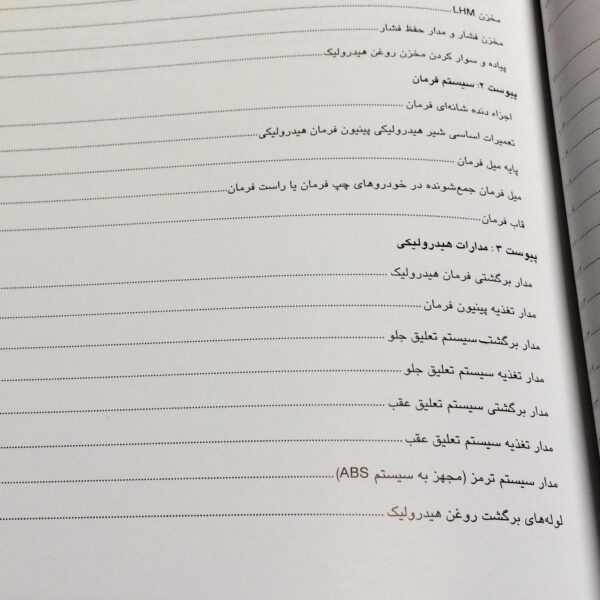 مخزن LHM
مخزن فشار و مدار حفظ فشار
پیاده و سوار کردن مخزن روغن هیدرولیک
پیوست ۲: سیستم فرمان
اجزاء دنده شانه‌ای فرمان
تعمیرات اساسی شیر هیدرولیکی پینیون فرمان هیدرولیکی
پایه میل فرمان
میل فرمان جمع‌شونده در خودروهای چپ فرمان یا راست فرمان
قاب فرمان
پیوست ۳: مدارات هیدرولیکی
مدار برگشتی فرمان هیدرولیک
مدار تغذیه پینیون فرمان
مدار برگشتی سیستم تعلیق جلو
مدار تغذیه سیستم تعلیق جلو
مدار برگشتی سیستم تعلیق عقب
مدار تغذیه سیستم تعلیق عقب
مدار سیستم ترمز (مجهز به سیستم ABS)
لوله‌های برگشت روغن هیدرولیک